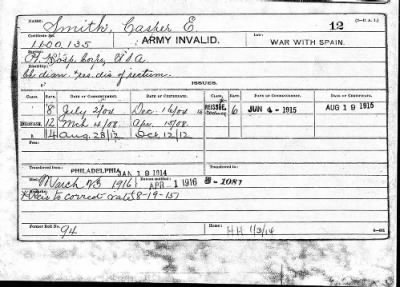 NAME: Smith, Casper E. 12
Certificate No. 1100,135 CLASS: ARMY INVALID. LAW: WAR WITH SPAIN.
Hosp. Corps, USA
Ch. diar. & res. dis of rectum.
ISSUES.
CLASS. RATE. DATE OF COMMENCEMENT. DATE OF CERTIFICATE. CLASS. RATE. DATE OF COMMENCEMENT. DATE OF CERTIFICATE.
8 July 2/04 Dec. 16/04 REISSUE 6 JUN 4 - 1915 AUG 19 1915
INCREASE. 12 Mch 4/08 Apr. 15/08
14 Aug. 28/12 Oct. 12/12
Transferred from PHILADELPHIA JAN 19 1914 Transferred to
Died March 23 1916 APR 1 1916 3-1087
to correct rate 8-19-15
Former Roll No. 94 Home: HH 1/3/14